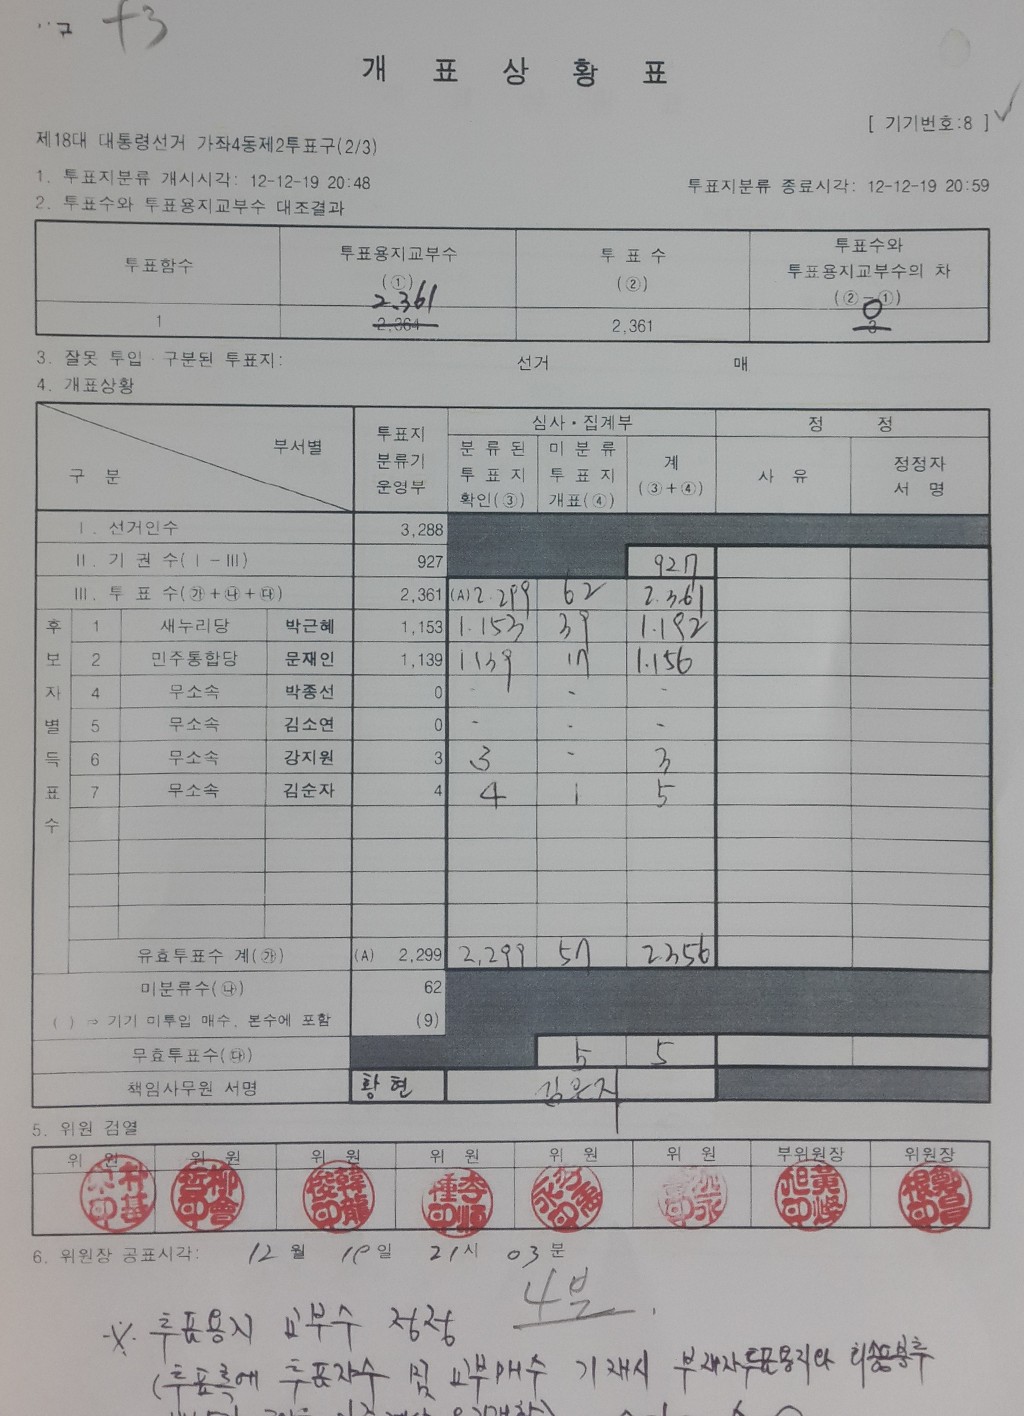 +3
개 표 상 황 표
[ 기기번호:8 ]
제18대 대통령선거 가좌4동제2투표구(2/3)
1. 투표지분류 개시시각: 12-12-19 20:48 투표지분류 종료시각: 12-12-19 20:59
2. 투표수와 투표용지교부수 대조결과
투표함수 투표용지교부수 (①) 투 표 수 (②) 투표수와 투표용지교부수의 차 (②-①)
2.361 0
1 2,364 2,361 3
3. 잘못 투입·구분된 투표지: 선거 매
4. 개표상황
부서별 구 분 투표지 분류기 운영부 심사·집계부 정 정
분 류 된 투 표 지 확인(③) 미 분 류 투 표 지 개표(④) 계 (③+④) 사 유 정정자 서 명
Ⅰ. 선거인수 3,288
Ⅱ. 기 권 수(Ⅰ-Ⅲ) 927 927
Ⅲ. 투 표 수(㉮+㉯+㉰) 2,361 (A) 2.299 62 2.361
후보자별득표수
1 새누리당 박근혜 1,153 1.153 39 1.192
2 민주통합당 문재인 1,139 1139 17 1.156
4 무소속 박종선 0 - - -
5 무소속 김소연 0 - - -
6 무소속 강지원 3 3 - 3
7 무소속 김순자 4 4 1 5
유효투표수 계(㉮) (A) 2,299 2,299 57 2.356
미분류수(㉯) 62
( ) ⇒ 기기 미투입 매수, 본수에 포함 (9)
무효투표수(㉰) 5 5
책임사무원 서명 황현
5. 위원 검열
위 원 위 원 위 원 위 원 위 원 위 원 부위원장 위원장
6. 위원장 공표시각: 12월 19일 21시 03분
4부
※. 투표용지 교부수 정정
(투표록에 투표자수 및 교부매수 기재시 부재자투표용지와